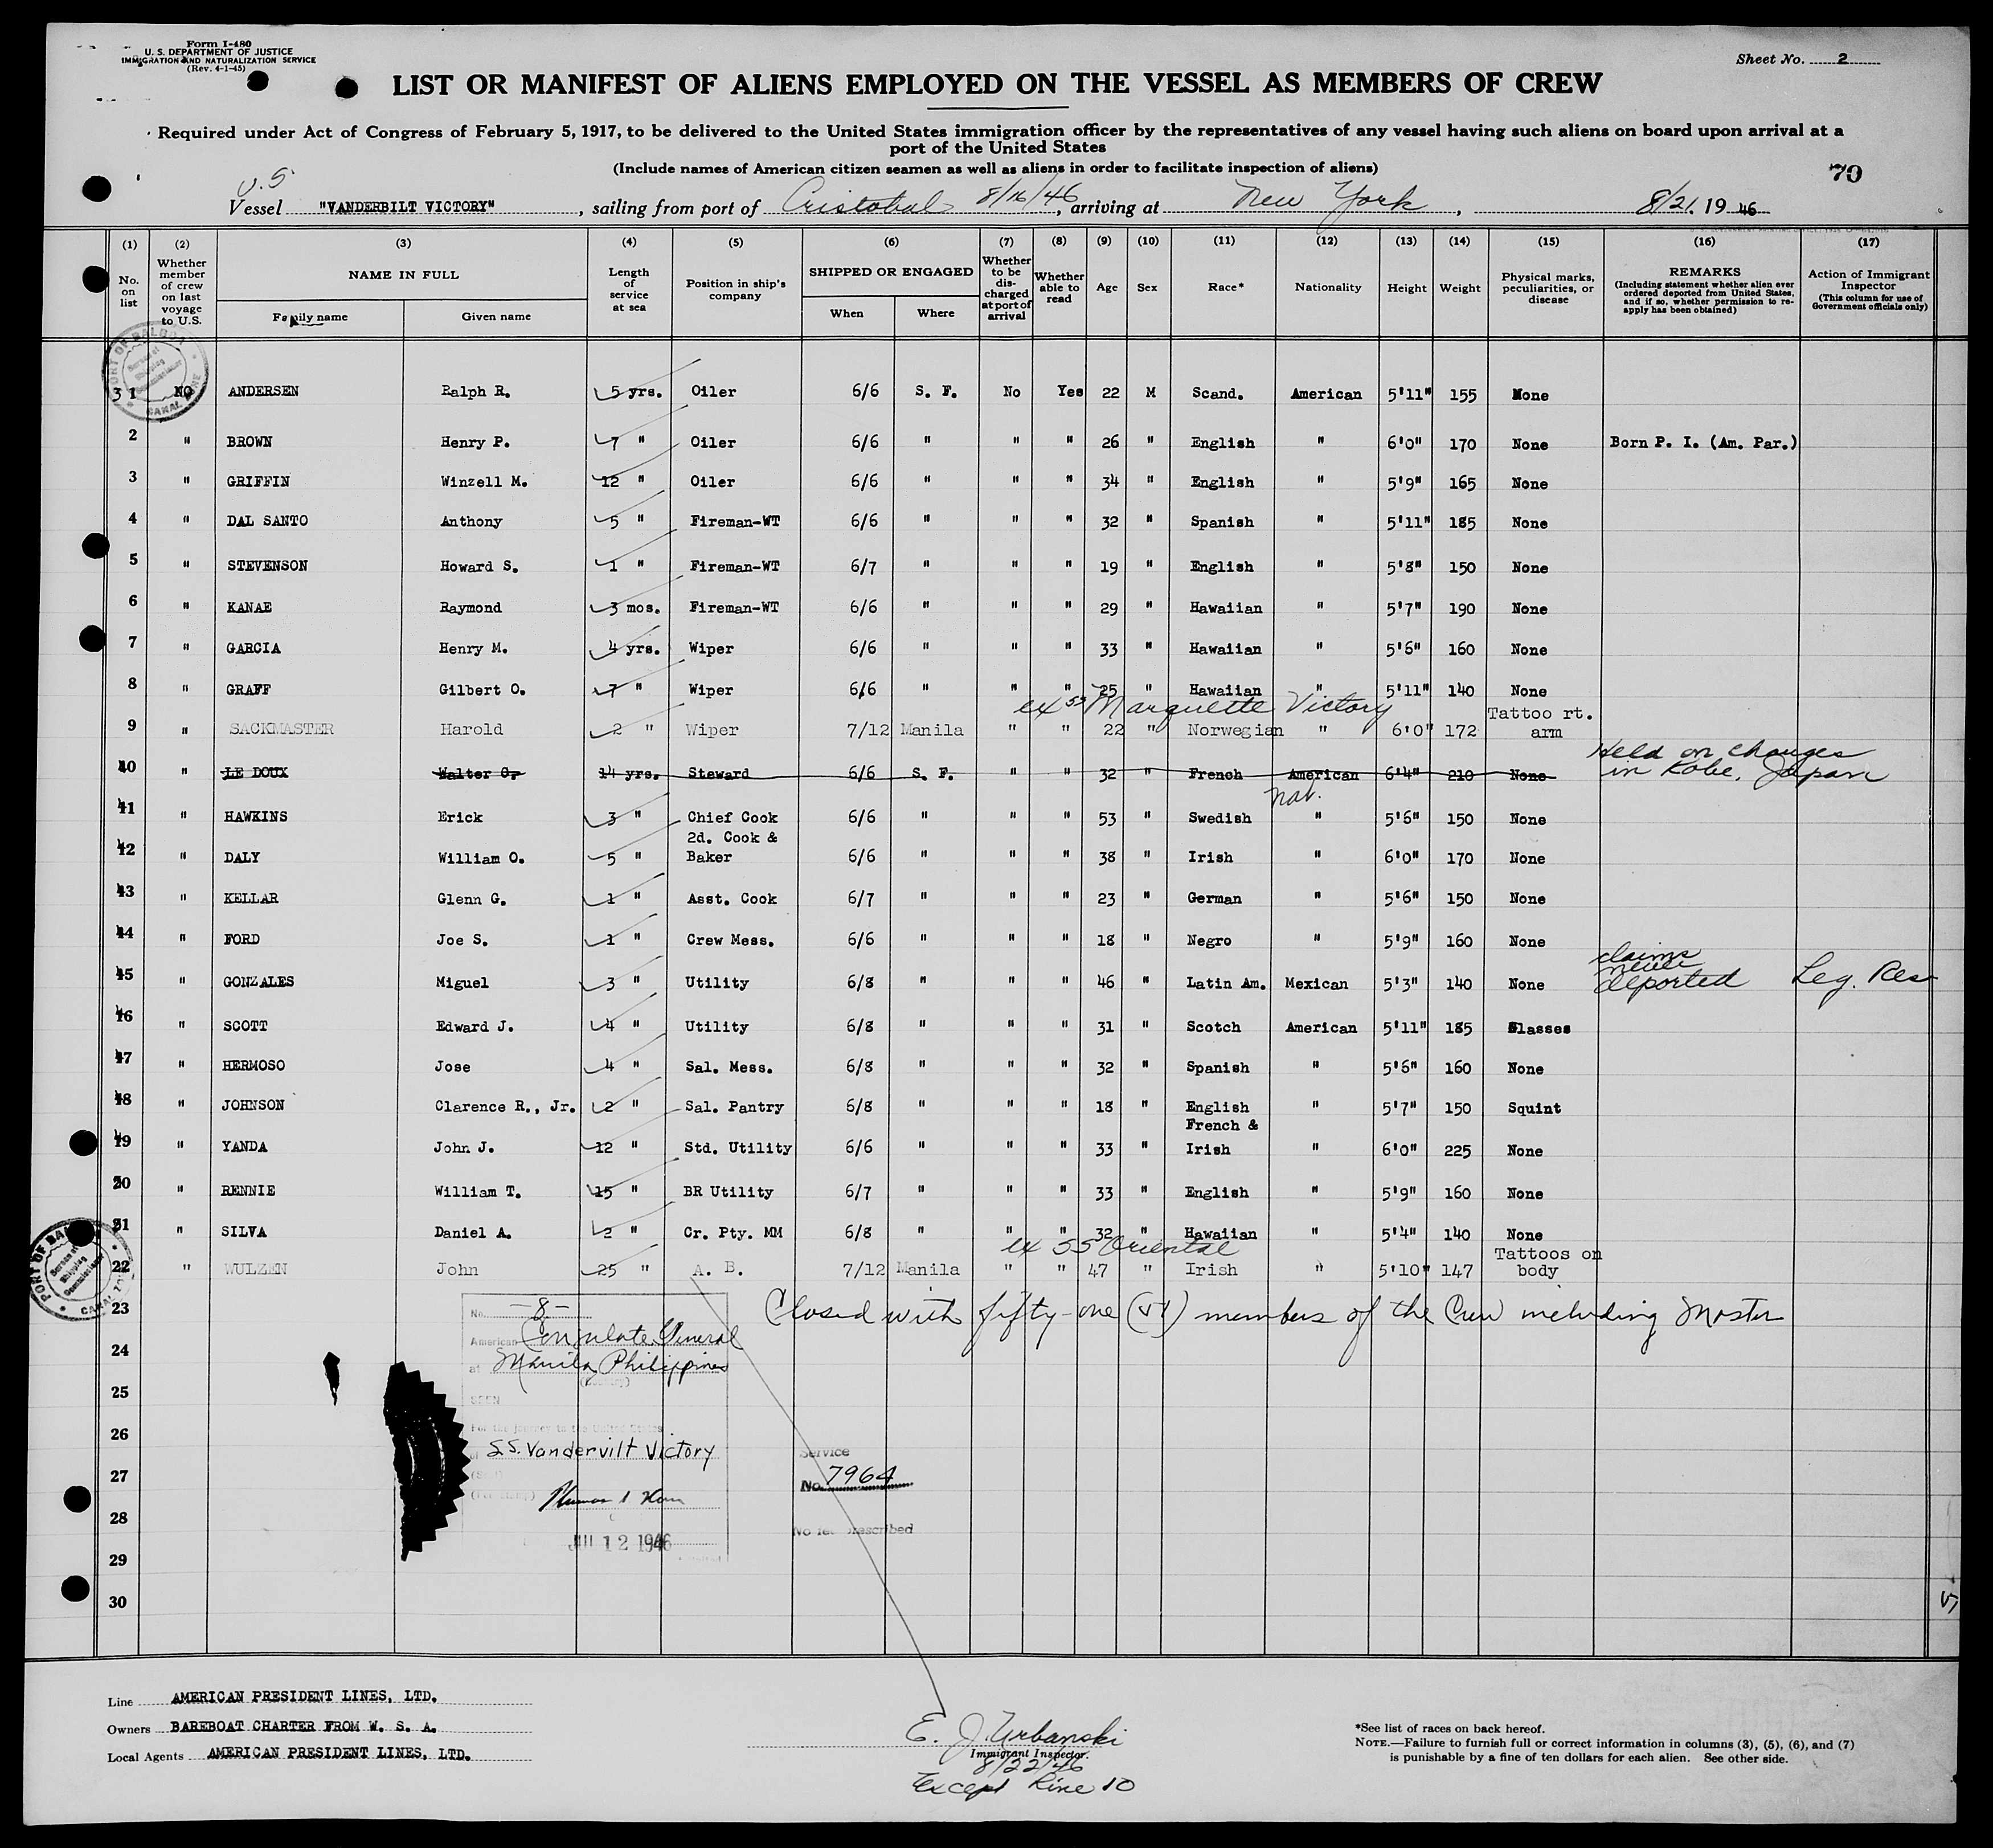 Form I-480
U. S. DEPARTMENT OF JUSTICE
IMMIGRATION AND NATURALIZATION SERVICE
(Rev. 4-1-45)
Sheet No. 2
LIST OR MANIFEST OF ALIENS EMPLOYED ON THE VESSEL AS MEMBERS OF CREW
Required under Act of Congress of February 5, 1917, to be delivered to the United States immigration officer by the representatives of any vessel having such aliens on board upon arrival at a
port of the United States
(Include names of American citizen seamen as well as aliens in order to facilitate inspection of aliens)
70
U.S.
Vessel "VANDERBILT VICTORY", sailing from port of Cristobal 8/16/46, arriving at New York, 8/21, 1946
(1) (2) (3) (4) (5) (6) (7) (8) (9) (10) (11) (12) (13) (14) (15) (16) (17)
No. on list
Whether member of crew on last voyage to U.S.
NAME IN FULL
Family name Given name
Length of service at sea
Position in ship's company
SHIPPED OR ENGAGED
When Where
Whether to be discharged at port of arrival
Whether able to read
Age Sex Race* Nationality Height Weight
Physical marks, peculiarities, or disease
REMARKS
(Including statement whether alien ever ordered deported from United States, and if so, whether permission to reapply has been obtained)
Action of Immigrant Inspector
(This column for use of Government officials only)
31 NO ANDERSEN Ralph R. 5 yrs. Oiler 6/6 S. F. No Yes 22 M Scand. American 5'11" 155 None
2 " BROWN Henry P. 7 " Oiler 6/6 " " " 26 " English " 6'0" 170 None Born P. I. (Am. Par.)
3 " GRIFFIN Winzell M. 12 " Oiler 6/6 " " " 34 " English " 5'9" 165 None
4 " DAL SANTO Anthony 5 " Fireman-WT 6/6 " " " 32 " Spanish " 5'11" 185 None
5 " STEVENSON Howard S. 1 " Fireman-WT 6/7 " " " 19 " English " 5'8" 150 None
6 " KANAE Raymond 3 mos. Fireman-WT 6/6 " " " 29 " Hawaiian " 5'7" 190 None
7 " GARCIA Henry M. 4 yrs. Wiper 6/6 " " " 33 " Hawaiian " 5'6" 160 None
8 " GRAFF Gilbert O. 7 " Wiper 6/6 " " " 25 " Hawaiian " 5'11" 140 None
ex SS Marquette Victory
9 " SACKMASTER Harold 2 " Wiper 7/12 Manila " " 22 " Norwegian " 6'0" 172 Tattoo rt. arm
10 " LE DOUX Walter G. 14 yrs. Steward 6/6 S. F. " " 32 " French American 6'4" 210 None Held on charges in Kobe, Japan
nat.
11 " HAWKINS Erick 3 " Chief Cook 6/6 " " " 53 " Swedish " 5'6" 150 None
12 " DALY William O. 5 " 2d. Cook & Baker 6/6 " " " 38 " Irish " 6'0" 170 None
13 " KELLAR Glenn G. 1 " Asst. Cook 6/7 " " " 23 " German " 5'6" 150 None
14 " FORD Joe S. 1 " Crew Mess. 6/6 " " " 18 " Negro " 5'9" 160 None
15 " GONZALES Miguel 3 " Utility 6/8 " " " 46 " Latin Am. Mexican 5'3" 140 None claims never deported Leg. Res
16 " SCOTT Edward J. 4 " Utility 6/8 " " " 31 " Scotch American 5'11" 185 Glasses
17 " HERMOSO Jose 4 " Sal. Mess. 6/8 " " " 32 " Spanish " 5'6" 160 None
18 " JOHNSON Clarence R., Jr. 2 " Sal. Pantry 6/8 " " " 18 " English " 5'7" 150 Squint
19 " YANDA John J. 12 " Std. Utility 6/6 " " " 33 " French & Irish " 6'0" 225 None
20 " RENNIE William T. 15 " BR Utility 6/7 " " " 33 " English " 5'9" 160 None
21 " SILVA Daniel A. 2 " Cr. Pty. MM 6/8 " " " 32 " Hawaiian " 5'4" 140 None
ex SS Oriental
22 " WULZEN John 25 " A. B. 7/12 Manila " " 47 " Irish " 5'10" 147 Tattoos on body
23 Closed with fifty-one (51) members of the Crew including Master
24
25
26
27
28
29
30
No. -8-
American Consulate General
at Manila, Philippines
(Country)
SEEN
For the journey to the United States
SS. Vandervilt Victory
JUL 12 1946
Service
No. 7964
No fee prescribed
Line AMERICAN PRESIDENT LINES, LTD.
Owners BAREBOAT CHARTER FROM W. S. A.
Local Agents AMERICAN PRESIDENT LINES, LTD.
E. J. Urbanski
Immigrant Inspector.
8/22/46
Except Line 10
*See list of races on back hereof.
NOTE.—Failure to furnish full or correct information in columns (3), (5), (6), and (7)
is punishable by a fine of ten dollars for each alien. See other side.